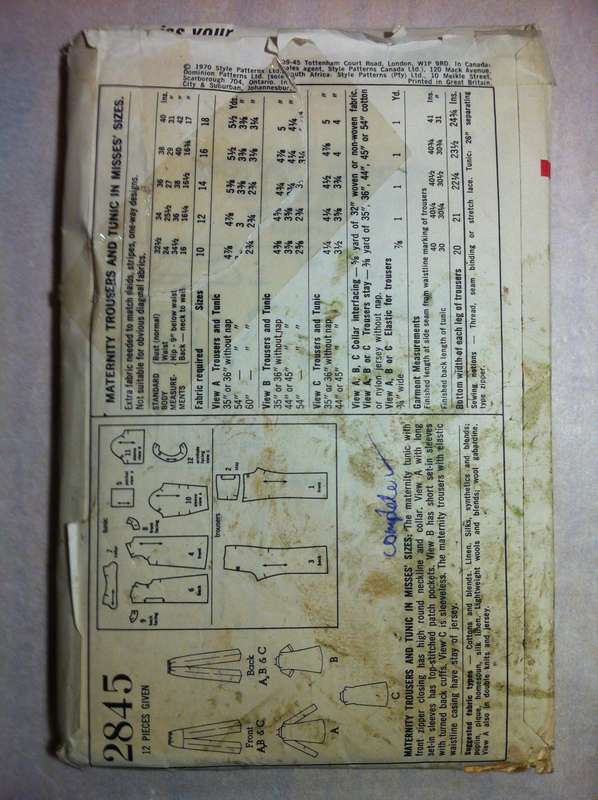 2845
12 PIECES GIVEN
Front
A,B & C
Back
A, B & C
A
B
C
tunic
trousers
MATERNITY TROUSERS AND TUNIC IN MISSES' SIZES: The maternity tunic with
front zipper closing has high round neckline and collar. View A with long
set-in sleeves has top-stitched patch pockets. View B has short set-in sleeves
with turned back cuffs. View C is sleeveless. The maternity trousers with elastic
waistline casing have stay of jersey.
Suggested fabric types — Cottons and blends. Linen. Silks, synthetics and blends;
poplin, pique, homespun, silk linen. Lightweight wools and blends; wool gabardine.
View A also in double knits and jersey.
complete
MATERNITY TROUSERS AND TUNIC IN MISSES' SIZES.
Extra fabric needed to match plaids, stripes, one-way designs.
Not suitable for obvious diagonal fabrics.
STANDARD Bust (normal) 32½ 34 36 38 40 Ins.
BODY Waist 24 25½ 27 29 31 "
MEASURE- Hip - 9" below waist 34½ 36 38 40 42 "
MENTS Back — neck to waist 16 16¼ 16½ 16¾ 17 "
Fabric required Sizes 10 12 14 16 18
View A Trousers and Tunic
35" or 36" without nap 4⅞ 4⅞ 5⅜ 5½ 5½ Yds.
54" — " " 3 3⅜ 3⅜ "
60" " " 2¾ 2¾ 2¾ 3⅛ 3¼ "
View B Trousers and Tunic
35" or 36" without nap 4⅜ 4⅝ 4¾ 4⅞ 5 "
44" or 45" " "
54" — " "
View C Trousers and Tunic
35" or 36" without nap 4¼ 4¼ 4½ 4⅞ 5 "
44" or 45" " " 3½ 3⅝ 3¾ 4 4 "
View A, B, C Collar interfacing — ⅝ yard of 32" woven or non-woven fabric.
View A, B or C Trousers stay — ⅜ yard of 35", 36", 44", 45" or 54" cotton
or nylon jersey without nap.
View A, B or C Elastic for trousers
¾" wide ⅞ 1 1 1 1 Yd.
Garment Measurements
Finished length at side seam from waistline marking of trousers
40 40¼ 40½ 40¾ 41 Ins.
Finished back length of tunic
30 30¼ 30½ 30¾ 31 "
Bottom width of each leg of trousers 20 21 22¼ 23½ 24¾ Ins.
Sewing notions — Thread, seam binding or stretch lace. Tunic: 26" separating
type zipper.
© 1970 Style Patterns Ltd. 39-45 Tottenham Court Road, London, W1P 9RD. In Canada:
Dominion Patterns Ltd. (sole sales agent, Style Patterns Canada Ltd.), 120 Mack Avenue,
Scarborough 704, Ontario. In South Africa: Style Patterns (Pty) Ltd., 10 Meikle Street,
City & Suburban, Johannesburg. Printed in Great Britain